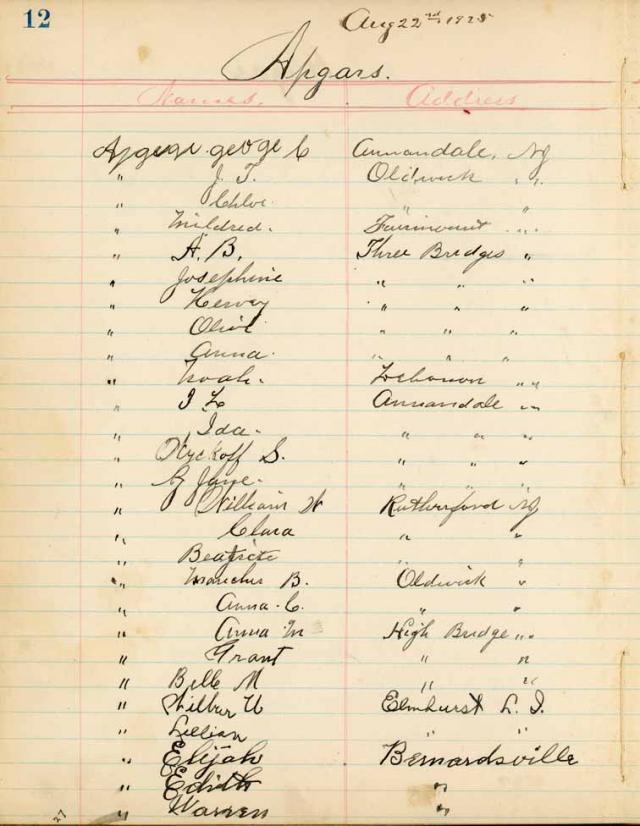 12
Aug 22nd 1925
Apgars.
Names. Address
Apgar George C Annandale, NJ
" J. T. Oldwick " "
" Chloe " "
" Mildred. Fairmount " "
" A. B. Three Bridges "
" Josephine " " "
" Hervey " " "
" Olive " " "
" Anna. " " "
" Noah. Lebanon " "
" I L Annandale " "
" Ida. " " "
" Wyckoff S. " " "
" G Jane. " " "
" William W Rutherford NJ
" Clara " "
" Beatrice " "
" B. Oldwick "
" Anna. C. " "
" Anna M High Bridge " "
" Grant " "
" Belle M " "
" Wilbur U Elmhurst L. I.
" Lillian " "
" Elijah Bernardsville
" Edith "
" Warren "
27